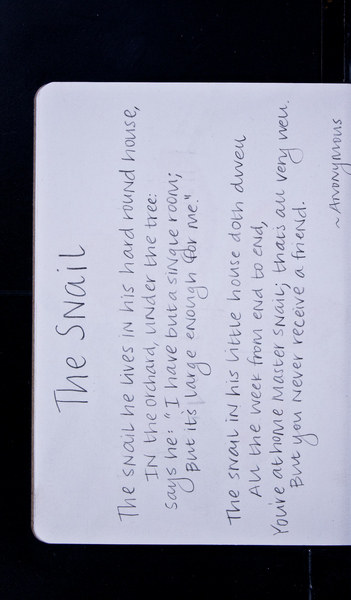 The SNaiL
The sNaiL he Lives iN his hard round house,
IN the orchard, under the tree:
says he: "I have but a siNgLe rooM;
But it's Large eNough for me."
The sNaiL iN his LittLe house doth dweLL
ALL the week from eNd to eNd,
You're at home Master sNaiL; thats aLL very weLL.
But you Never receive a frieNd.
~ANoNyMous